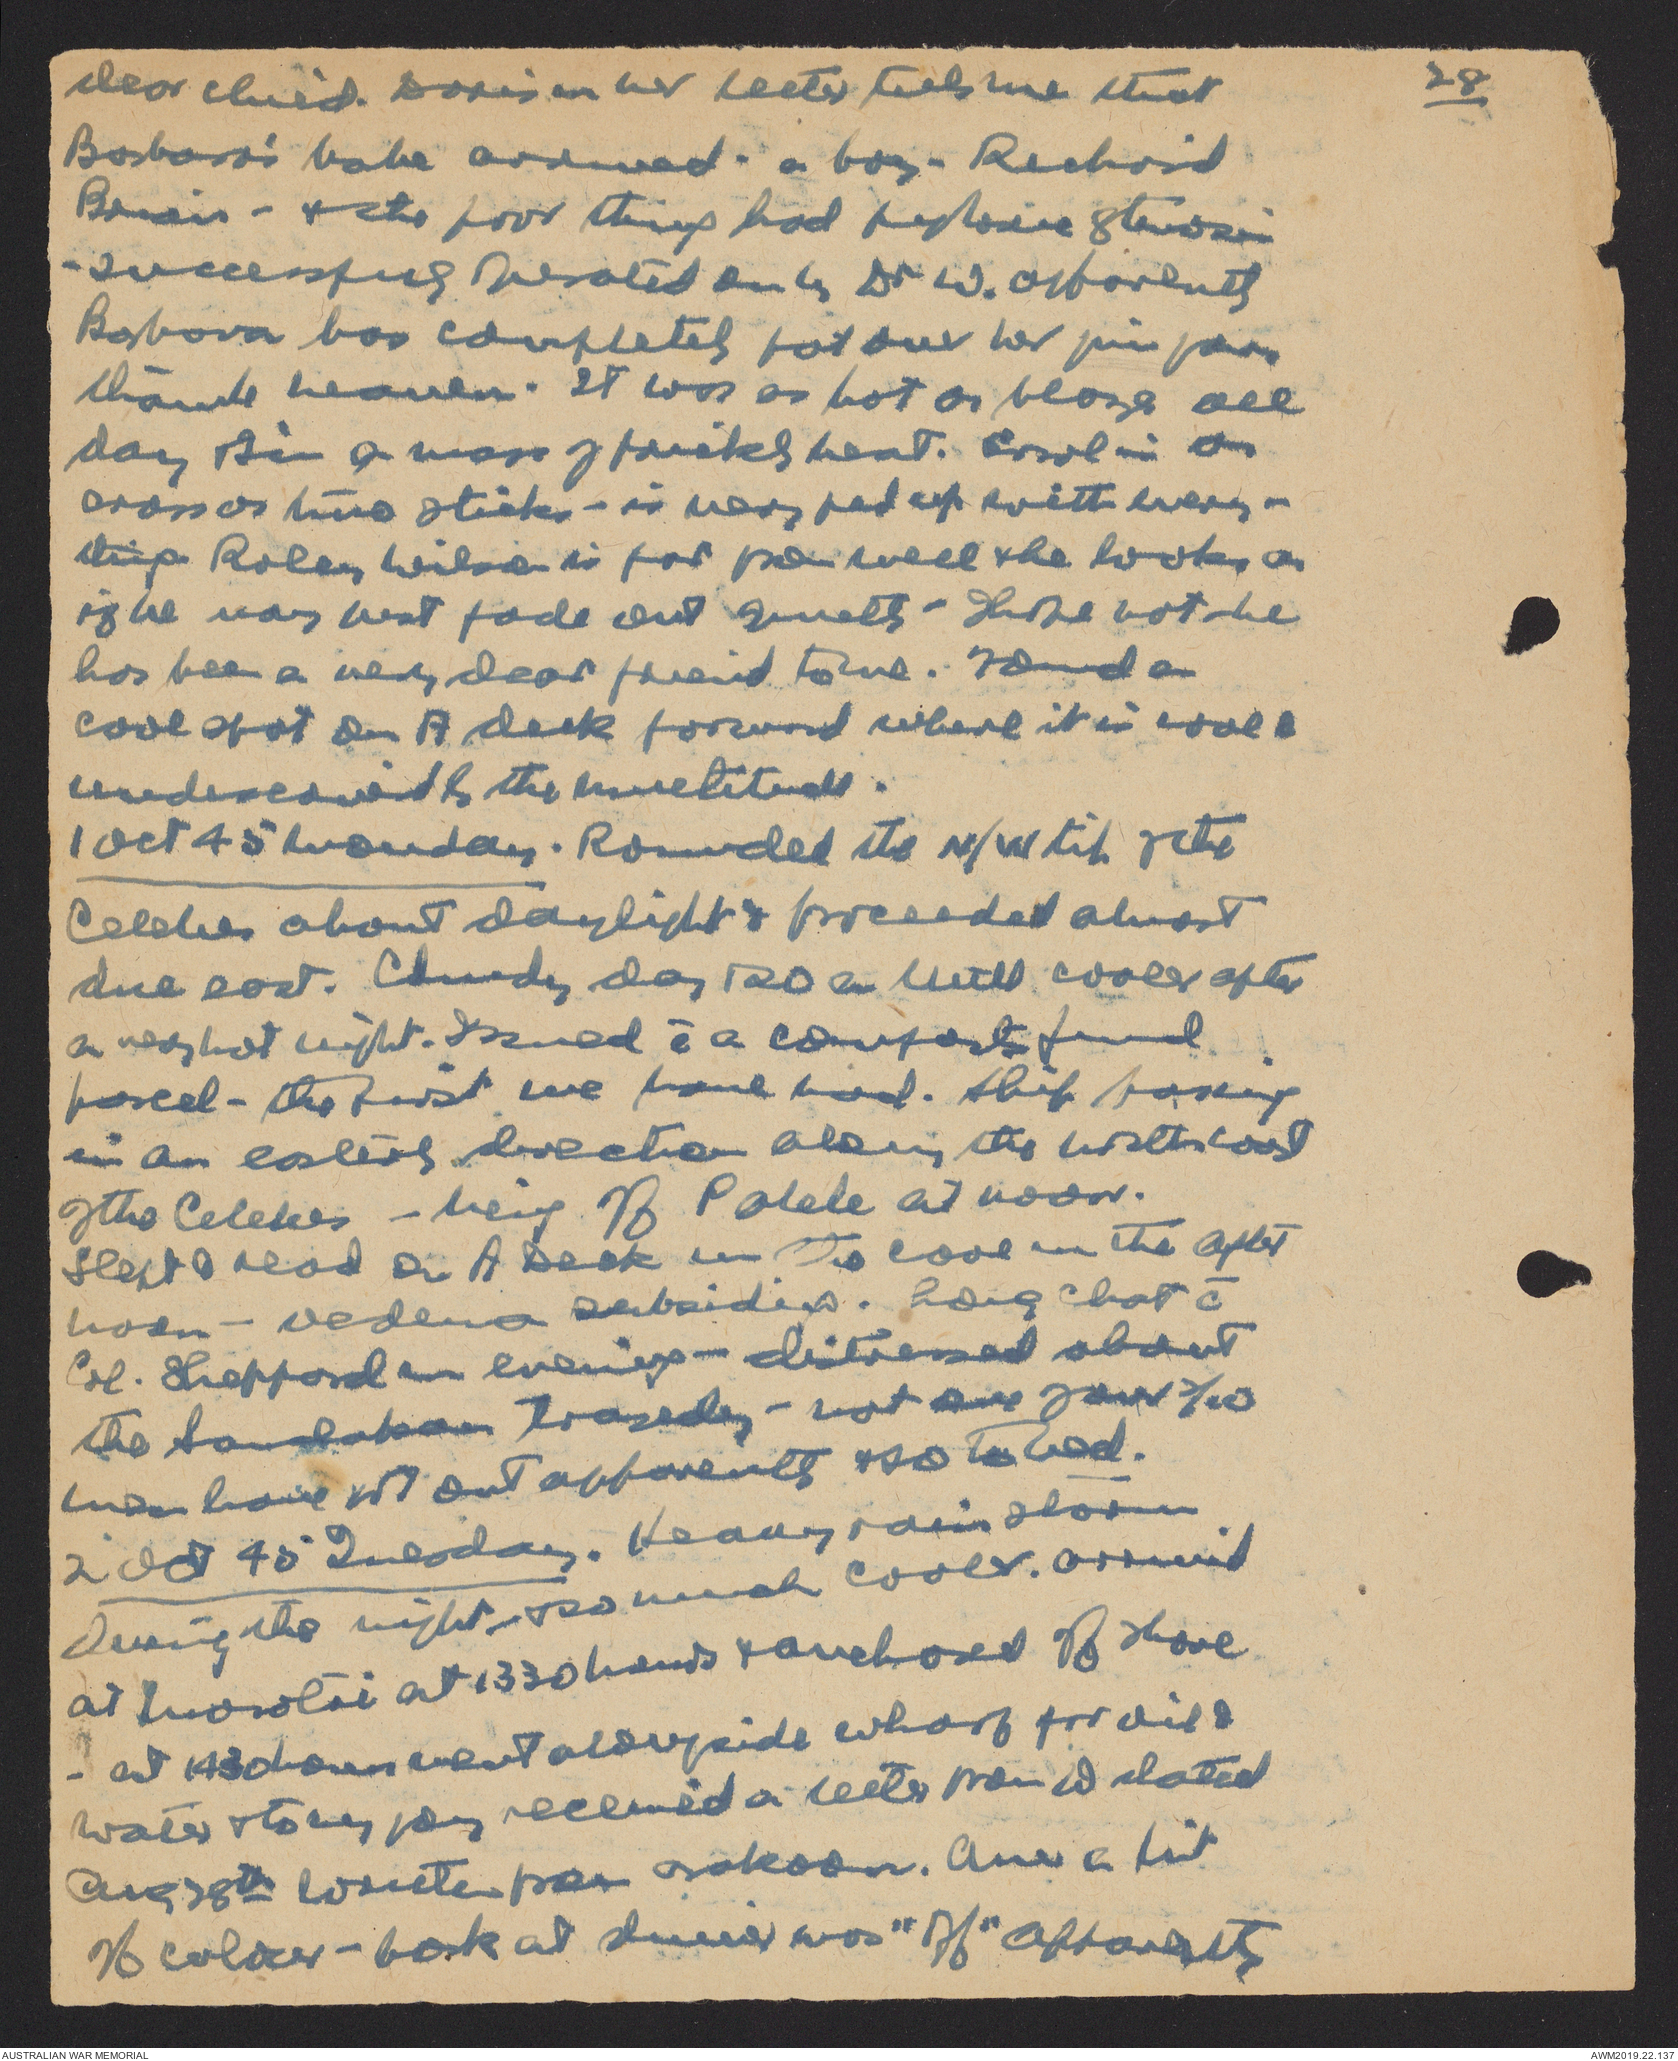 28
dear child. Doris in her letter tells me that
Barbara's babe arrived - a boy - Richard
Brian - & the poor thing had pyloric stenosis
- successfully operated on by Dr W. apparently
Barbara has completely got over her jim jams
thank heaven. It was as hot as blazes all
day & I'm a mass of prickly heat. Carol is as
cross as two sticks - is very fed up with every-
thing Roley Wilson is far from well & he looks as
if he may just fade out quietly - I hope not he
has been a very dear friend to me. Found a
cool spot on A deck forward where it is cool &
undiscovered by the multitude.
1 Oct 45 Monday. Rounded the N/W tip of the
Celebes about daylight & proceeded almost
due east. Cloudy day & so a little cooler after
a very hot night. Issued c̄ a comforts fund
parcel - the first we have had. Ship passing
in an easterly direction along the north coast
of the Celebes - being off Palele at noon.
Slept & read on A Deck in the cool in the after
noon - oedema subsiding. Long chat c̄
Col. Sheppard in evening - distressed about
the Sandakan tragedy - not one of our 2/10
men have got out apparently & so to bed.
2 Oct 45 Tuesday. Heavy rain storm
during the night - & so much cooler. Arrived
at Morotai at 1330 hours & anchored off shore
- at 1430 hours went alongside wharf for oil &
water & to my joy received a letter from W dated
Aug 28th written from . Am a bit
off colour - pork at dinner was "off" apparently
AUSTRALIAN WAR MEMORIAL
AWM2019.22.137